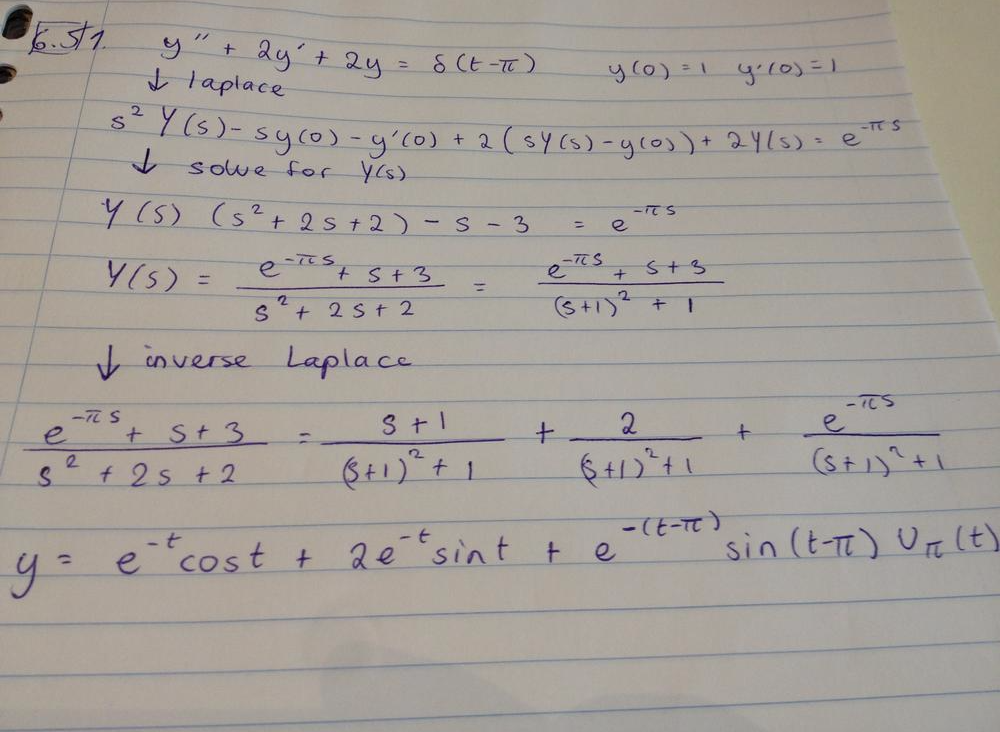 6.5/1. y'' + 2y' + 2y = δ(t-π) y(0) = 1 y'(0) = 1
↓ laplace
s² Y(s) - sy(0) - y'(0) + 2(sY(s) - y(0)) + 2Y(s) = e^{-πs}
↓ solve for Y(s)
Y(s) (s² + 2s + 2) - s - 3 = e^{-πs}
Y(s) = \frac{e^{-πs} + s + 3}{s² + 2s + 2} = \frac{e^{-πs} + s + 3}{(s+1)² + 1}
↓ inverse Laplace
\frac{e^{-πs} + s + 3}{s² + 2s + 2} = \frac{s + 1}{(s+1)² + 1} + \frac{2}{(s+1)² + 1} + \frac{e^{-πs}}{(s+1)² + 1}
y = e^{-t} cos t + 2e^{-t} sin t + e^{-(t-π)} sin(t-π) U_π(t)